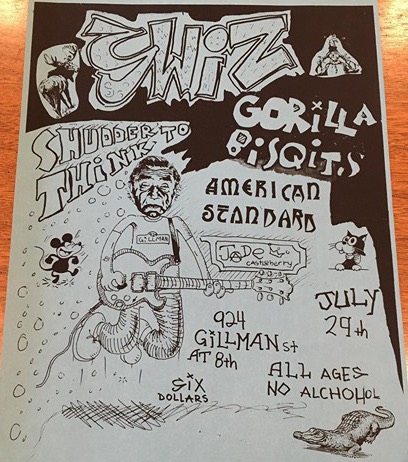 SWIZ
GORiLLA
BiSQiT.S
SHUDDER TO
THiNK
AMERICAN
STANDARD
GiLLMAN
JADE
CASTLEBERRY
JULY
29th
924
GiLLMAN st
AT 8th
SiX
DOLLARS
ALL AGES
NO ALCHOHOL